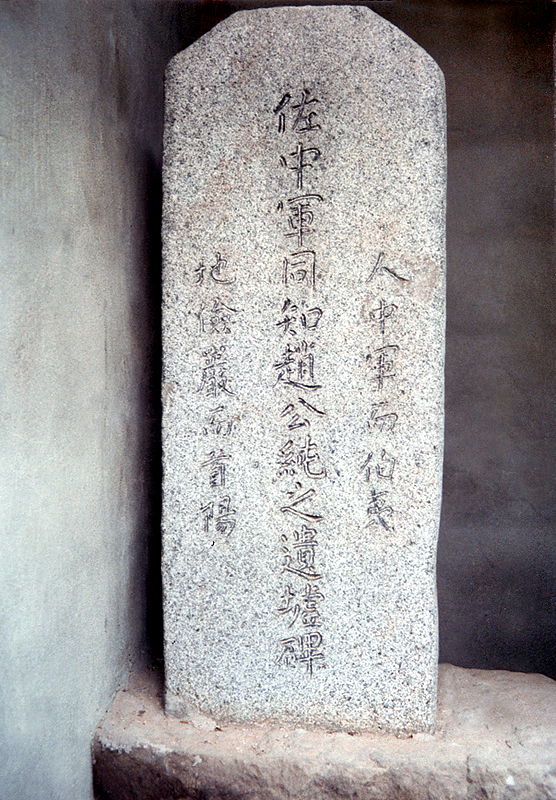 人中軍而伯夷
佐中軍同知趙公純之遺墟碑
地儉巖而首陽